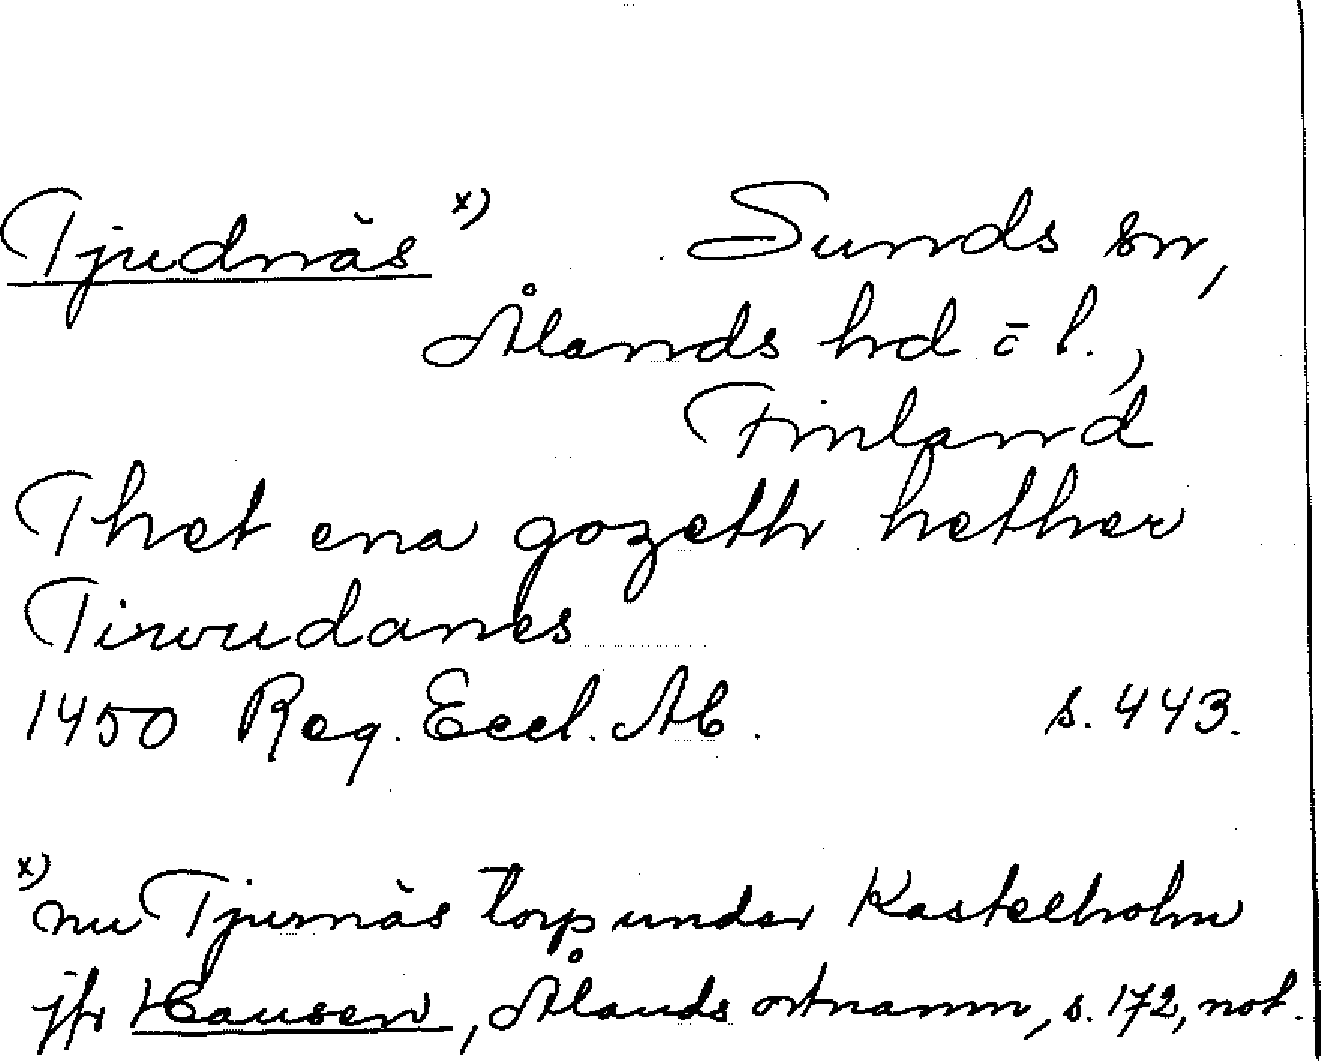 Tjudnäs x) Sunds sn,
Ålands hd o l.,
Finland
Thet ena gozeth hether
Tiwudanes
1450 Reg. Eccl. Ab. s. 443.
x) nu Tjurnäs torp under Kastelholm
jfr Hausen, Ålands ortnamn, s. 172, not.